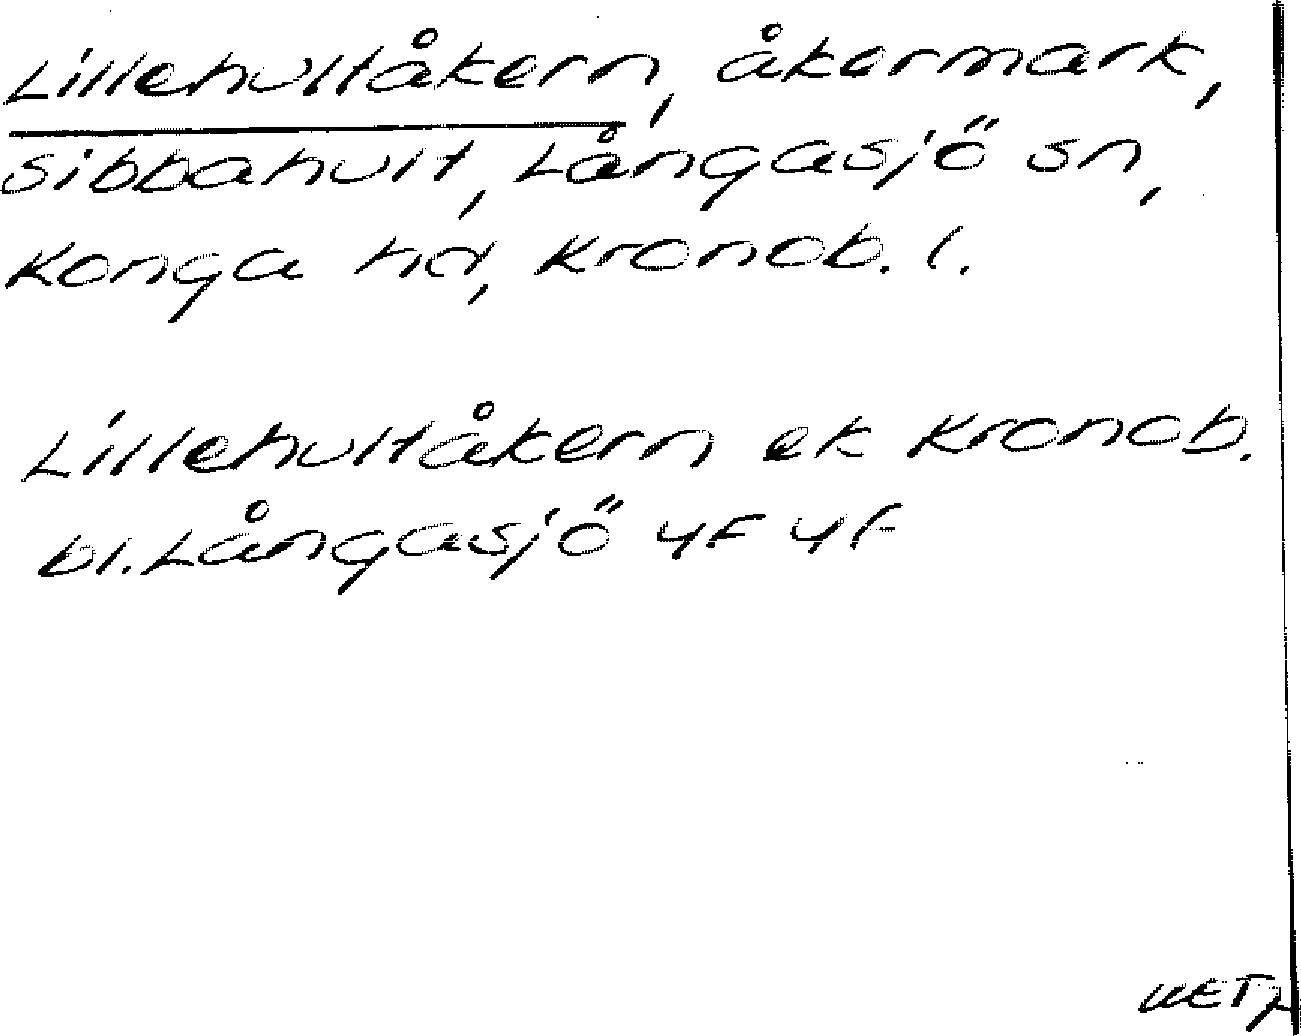 Lillehultåkern, åkermark,
Sibbahult, Långasjö sn,
Konga hd, Kronob. l.
Lillehultåkern ek Kronob.
bl. Långasjö 4F 4f